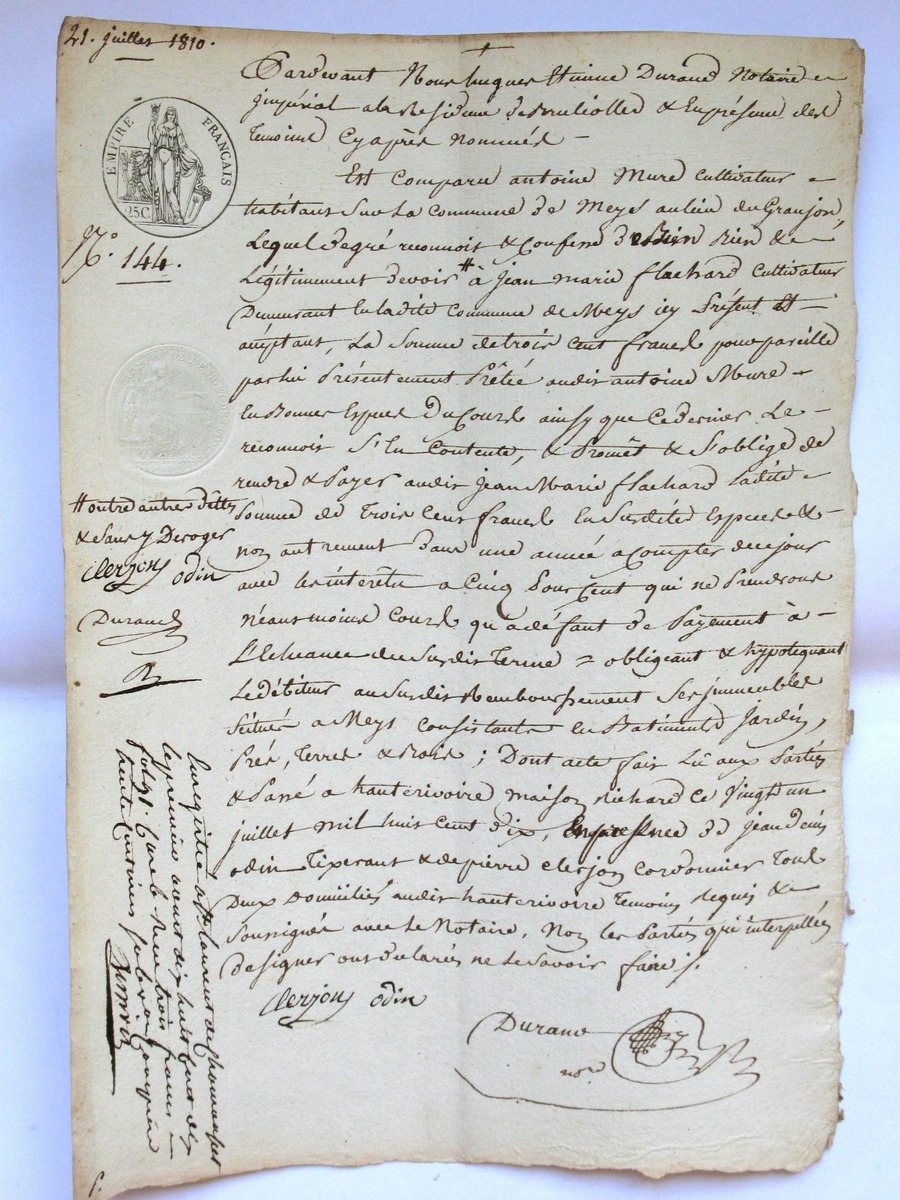 21. juillet 1810.
EMPIRE FRANÇAIS
25C
N.o 144.
Pardevant Nous hugues Etienne Durand Notaire
jmpérial a la Residence de Brulliolles & En présence des
Temoins Cyaprès Nommés
Est Comparu antoine Mure Cultivateur
habitant Sur La Commune de Meys au lieu du Granjon,
Lequel de gré reconnoit & Confesse de Bien Rien &
Légitimement devoir # à Jean marie flachard Cultivateur
Demeurant En ladite Commune de Meys jcy Présent Et
acceptant, La Somme de trois Cent francs pour pareille
par lui Présentement Prêtée audit antoine Mure
En Bonnes Espèces Du Cours ainsy que Ce dernier Le
reconnoit S'En Contente, & Promêt & S'oblige de
rendre & Payer audit Jean Marie flachard Ladite
Somme de Trois Cent francs En Susdites Espèces &
non autrement Dans une année a Compter de ce jour
avec les interêts a Cinq Pour Cent qui ne Prendront
néanmoins Cours qu'a défaut de Payement à
L'Echéance du Susdit Terme = obligeant & hypotequant
Le débiteur au Susdit Remboursement Ses jmmeubles
Situés a Meys Consistants En Batiments Jardin,
Prés, Terres & Bois ; Dont acte fait Lû aux Parties
& Passé a hauterivoire maison Richard Ce Vingt un
juillet Mil huit Cent dix, En présence de Jean denis
odin Tixerant & de pierre clerjon Cordonnier Tous
Deux Domiciliés audit hauterivoire Temoins Requis &
Soussignés avec Le Notaire, Non les Parties qui interpellées
De signer ont déclaré ne Le Savoir faire /.
Clerjon odin
Durand
no.re
# outre autres dettes
& Sans y Deroger
Clerjon odin
Durand
Enregistré a St. laurent de Chamousset
le premier aoust dix huit cent dix
fol. 91. Reçu trois francs
trente Centimes Subvention Comprise